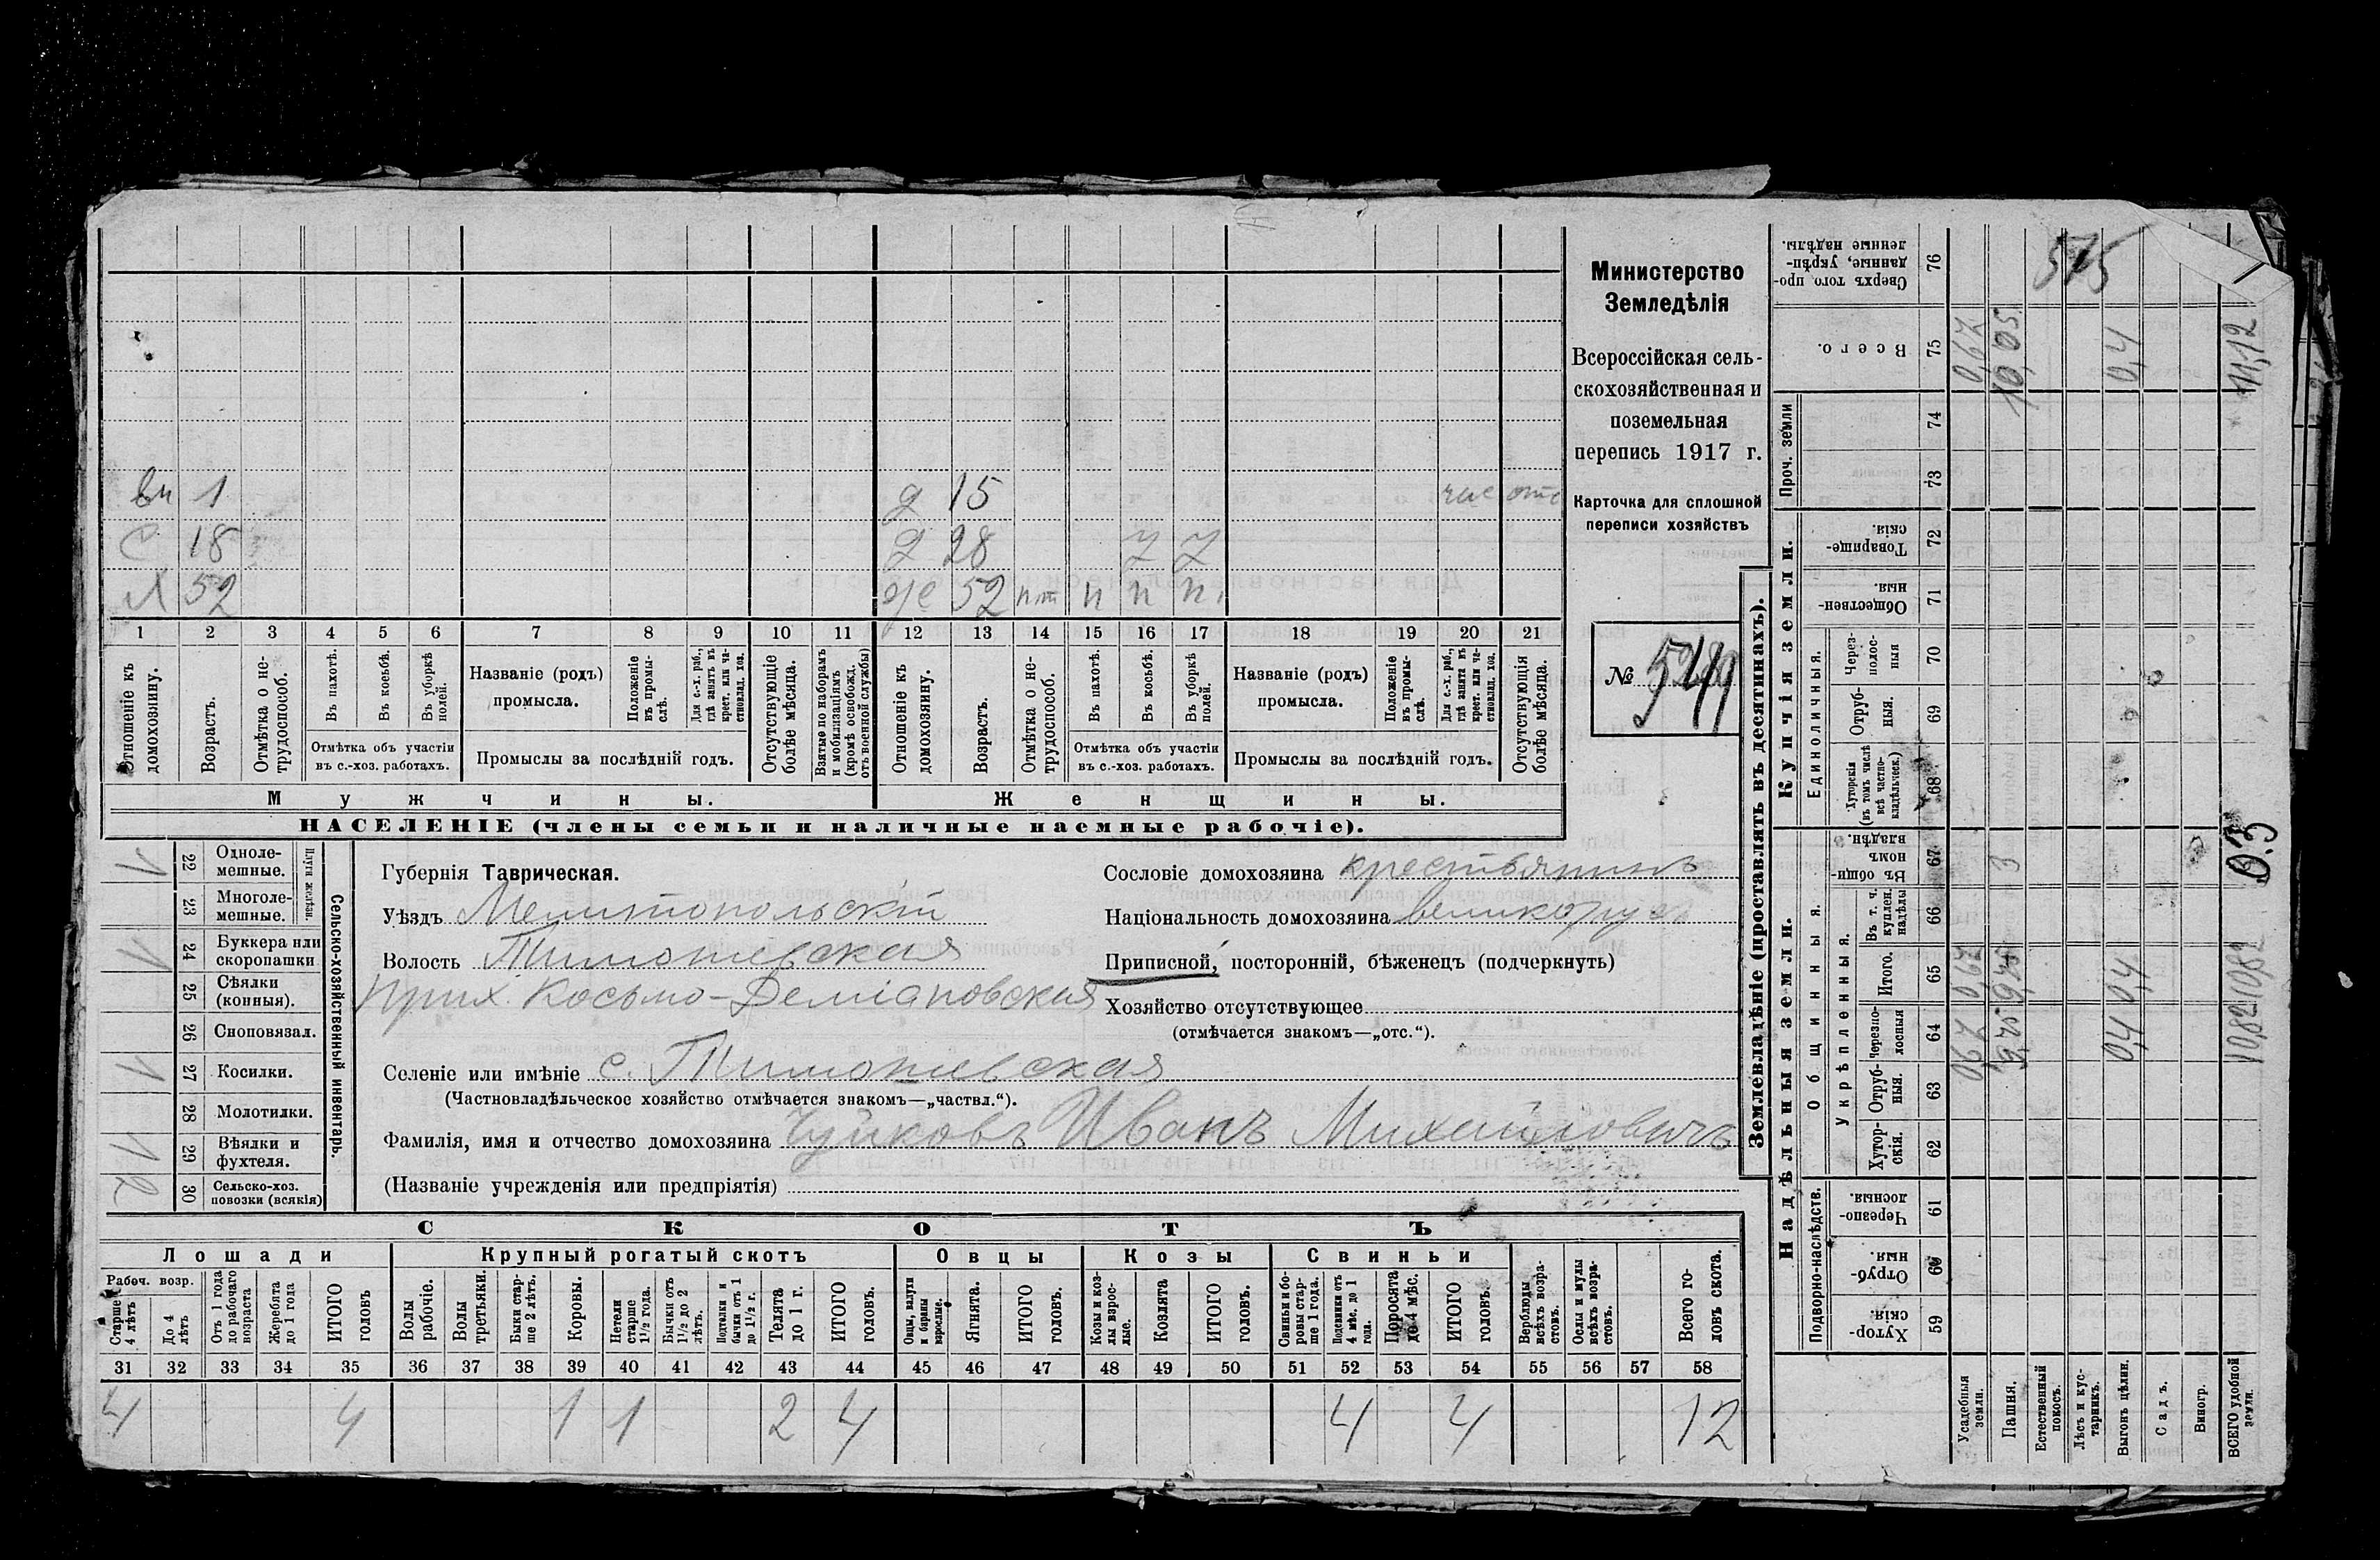 Министерство
Земледѣлія
Всероссійская сель-
скохозяйственная и
поземельная
перепись 1917 г.
Карточка для сплошной
переписи хозяйствъ
№ 549
вн 1 д 15 час отс
с 18 д 28 7 7
х 52 же 52 п.т п п п
1 2 3 4 5 6 7 8 9 10 11 12 13 14 15 16 17 18 19 20 21
Отношеніе къ домохозяину.
Возрастъ.
Отмѣтка о не-трудоспособ.
Въ пахотѣ.
Въ косьбѣ.
Въ уборкѣ полей.
Отмѣтка объ участіи въ с.-хоз. работахъ.
Названіе (родъ) промысла.
Положеніе въ промы-слѣ.
Для с.-х. раб., гдѣ занятъ въ крест. или ча-стновлад. хоз.
Промыслы за послѣдній годъ.
Отсутствующіе болѣе мѣсяца.
Взятые по наборамъ и мобилизаціямъ (кромѣ освобожд. отъ военной службы)
Отношеніе къ домохозяину.
Возрастъ.
Отмѣтка о не-трудоспособ.
Въ пахотѣ.
Въ косьбѣ.
Въ уборкѣ полей.
Отмѣтка объ участіи въ с.-хоз. работахъ.
Названіе (родъ) промысла.
Положеніе въ промы-слѣ.
Для с.-х. раб., гдѣ занята въ крест. или ча-стновлад. хоз.
Промыслы за послѣдній годъ.
Отсутствующія болѣе мѣсяца.
Мужчины. Женщины.
НАСЕЛЕНІЕ (члены семьи и наличные наемные рабочіе).
Сельско-хозяйственный инвентарь.
Плуги желѣзн.
1 22 Одноле-мешные.
23 Многоле-мешные.
1 24 Буккера или скоропашки
25 Сѣялки (конныя).
26 Сноповязал.
1 27 Косилки.
28 Молотилки.
1 29 Вѣялки и фухтеля.
2 30 Сельско-хоз. повозки (всякія)
Губернія Таврическая.
Уѣздъ Мелитопольскій
Волость Тимошевская
Прих. Косьмо-Деміановская
Селеніе или имѣніе с. Тимошевская
(Частновладѣльческое хозяйство отмѣчается знакомъ—„частвл.“).
Фамилія, имя и отчество домохозяина Чуйковъ Иванъ Михайловичъ
(Названіе учрежденія или предпріятія)
Сословіе домохозяина крестьянинъ
Національность домохозяина великорус
Приписной, посторонній, бѣженецъ (подчеркнуть)
Хозяйство отсутствующее
(отмѣчается знакомъ—„отс.“).
СКОТЪ
Лошади Крупный рогатый скотъ Овцы Козы Свиньи
Рабоч. возр.
Старше 4 лѣтъ
До 4 лѣтъ
Отъ 1 года до рабочаго возраста
Жеребята до 1 года
ИТОГО головъ
Волы рабочіе.
Волы третьяки.
Быки стар-ше 2 лѣтъ.
Коровы.
Нетели старше 1½ года.
Бычки отъ 1½ до 2 лѣтъ.
Подтелки и бычки отъ 1 до 1½ г.
Телята до 1 г.
ИТОГО головъ.
Овцы, валухи и бараны взрослые.
Ягнята.
ИТОГО головъ.
Козы и коз-лы взрос-лые.
Козлята
ИТОГО головъ.
Свиньи и бо-ровы стар-ше 1 года.
Подсвинки отъ 4 мѣс. до 1 года.
Поросята до 4 мѣс.
ИТОГО головъ.
Верблюды всѣхъ возра-стовъ.
Ослы и мулы всѣхъ возра-стовъ.
Всего го-ловъ скота.
31 32 33 34 35 36 37 38 39 40 41 42 43 44 45 46 47 48 49 50 51 52 53 54 55 56 57 58
4 4 1 1 2 4 4 4 12
Землевладѣніе (проставлять въ десятинахъ).
Надѣльныя земли. Купчія земли. Проч. земли
Подворно-наслѣдств. Общинныя. Единоличныя.
Укрѣпленныя.
59 Хутор-скія.
60 Отруб-ныя.
61 Черезпо-лосныя.
62 Хутор-скія.
63 Отруб-ныя.
64 Черезпо-лосныя
65 Итого.
66 Въ т. ч. куплен. надѣлы
67 Въ общи-номъ владѣн.
68 Хуторскія (въ томъ числѣ всѣ частно-владѣльческ.)
69 Отруб-ныя.
70 Через-полос-ныя
71 Обществен-ныя.
72 Товарище-скія.
73
74
75 Всего.
76 Сверхъ того про-данные, укрѣп-ленные надѣлы.
Усадебныя земли. 0,67 0,67 0,67
Пашня. 9,75 9,75 3 10,05
Естественный покосъ.
Лѣсъ и кус-тарникъ.
Выгонъ цѣлин. 0,4 0,4 0,4
Садъ.
Виногр.
ВСЕГО удобной земли. 10,82 10,82 0.3 11,12
515